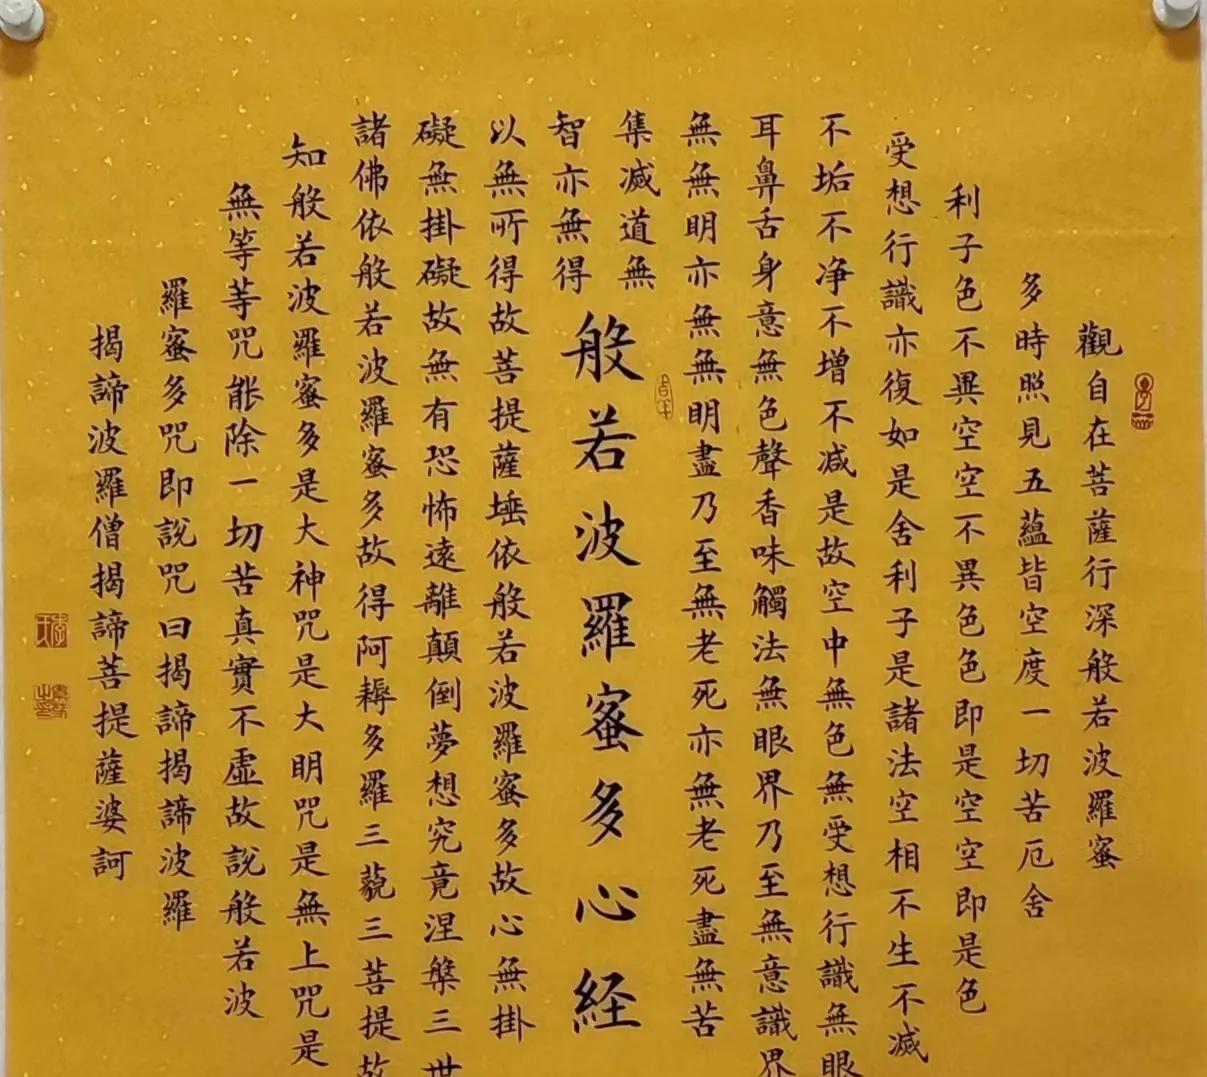 觀自在菩薩行深般若波羅蜜
多時照見五蘊皆空度一切苦厄舍
利子色不異空空不異色色即是空空即是色
受想行識亦復如是舍利子是諸法空相不生不减
不垢不净不增不减是故空中無色無受想行識無眼
耳鼻舌身意無色聲香味觸法無眼界乃至無意識界
無無明亦無無明盡乃至無老死亦無老死盡無苦
集减道無
智亦無得
般若波羅蜜多心経
以無所得故菩提薩埵依般若波羅蜜多故心無掛
礙無掛礙故無有恐怖遠離顛倒夢想究竟涅槃三世
諸佛依般若波羅蜜多故得阿耨多羅三藐三菩提故
知般若波羅蜜多是大神咒是大明咒是無上咒是
無等等咒能除一切苦真實不虛故說般若波
羅蜜多咒即說咒曰揭諦揭諦波羅
揭諦波羅僧揭諦菩提薩婆訶